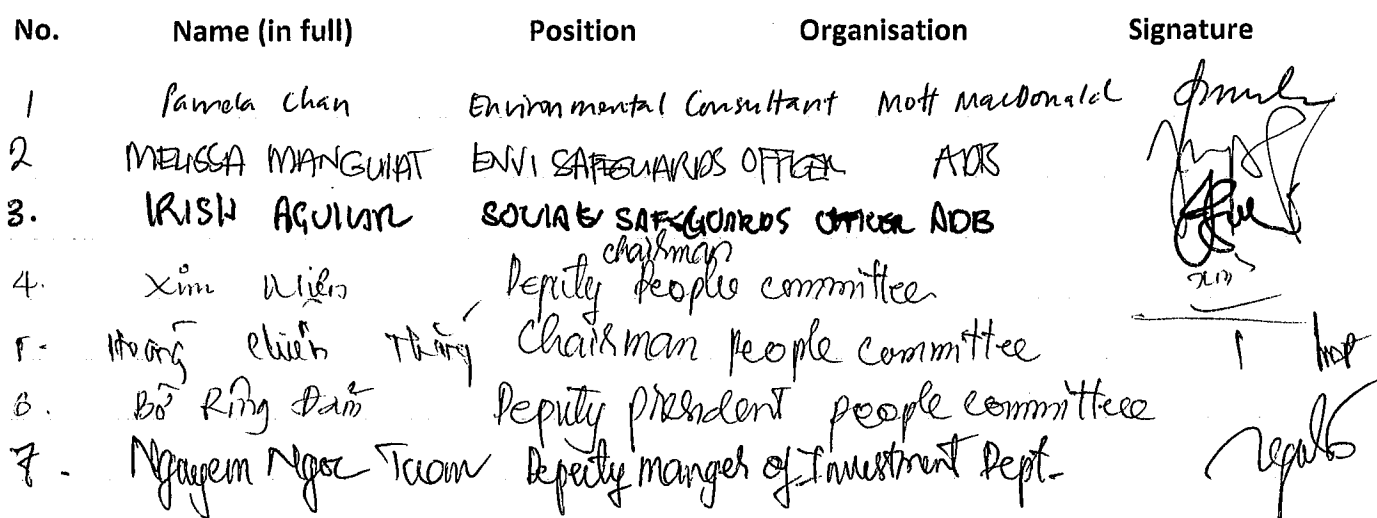 No. Name (in full) Position Organisation Signature
1 Pamela Chan Environmental Consultant Mott MacDonald
2 MELISSA MANGUIAT ENVI SAFEGUARDS OFFICER ADB
3. IRISH AGUILAR SOCIAL SAFEGUARDS OFFICER ADB
chairman
4. Xim Deputy People committee
5. Hoàng Chiến Thắng Chairman people committee
6. Bờ Rông Đam Deputy president people committee
7. Nguyen Ngoc Tuan Deputy manger of Investment Dept.